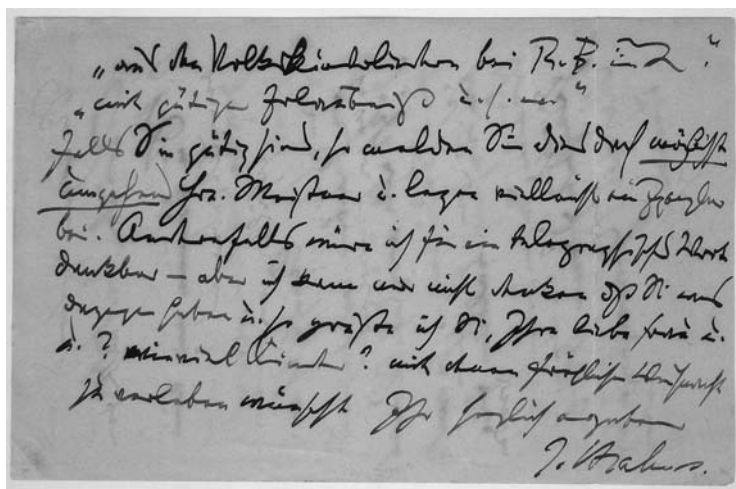 „aus den Volks Kinderliedern bei R. B. in
„mit gütiger Erlaubniß u.s.w."
Falls Sie gütig sind, so melden Sie dies doch möglichst
umgehend Hrn. Meißner u. legen vielleicht ein Exemplar
bei. Andernfalls wäre ich für ein telegraphisch Wort
dankbar — aber ich kann mir nicht denken daß Sie was
dagegen haben u. so grüße ich Sie, Ihre liebe Frau u.
u. ? wieviel Kinder? mit denen fröhliche Weihnacht
zu verleben wünscht Ihr herzlich ergebener
J. Brahms.